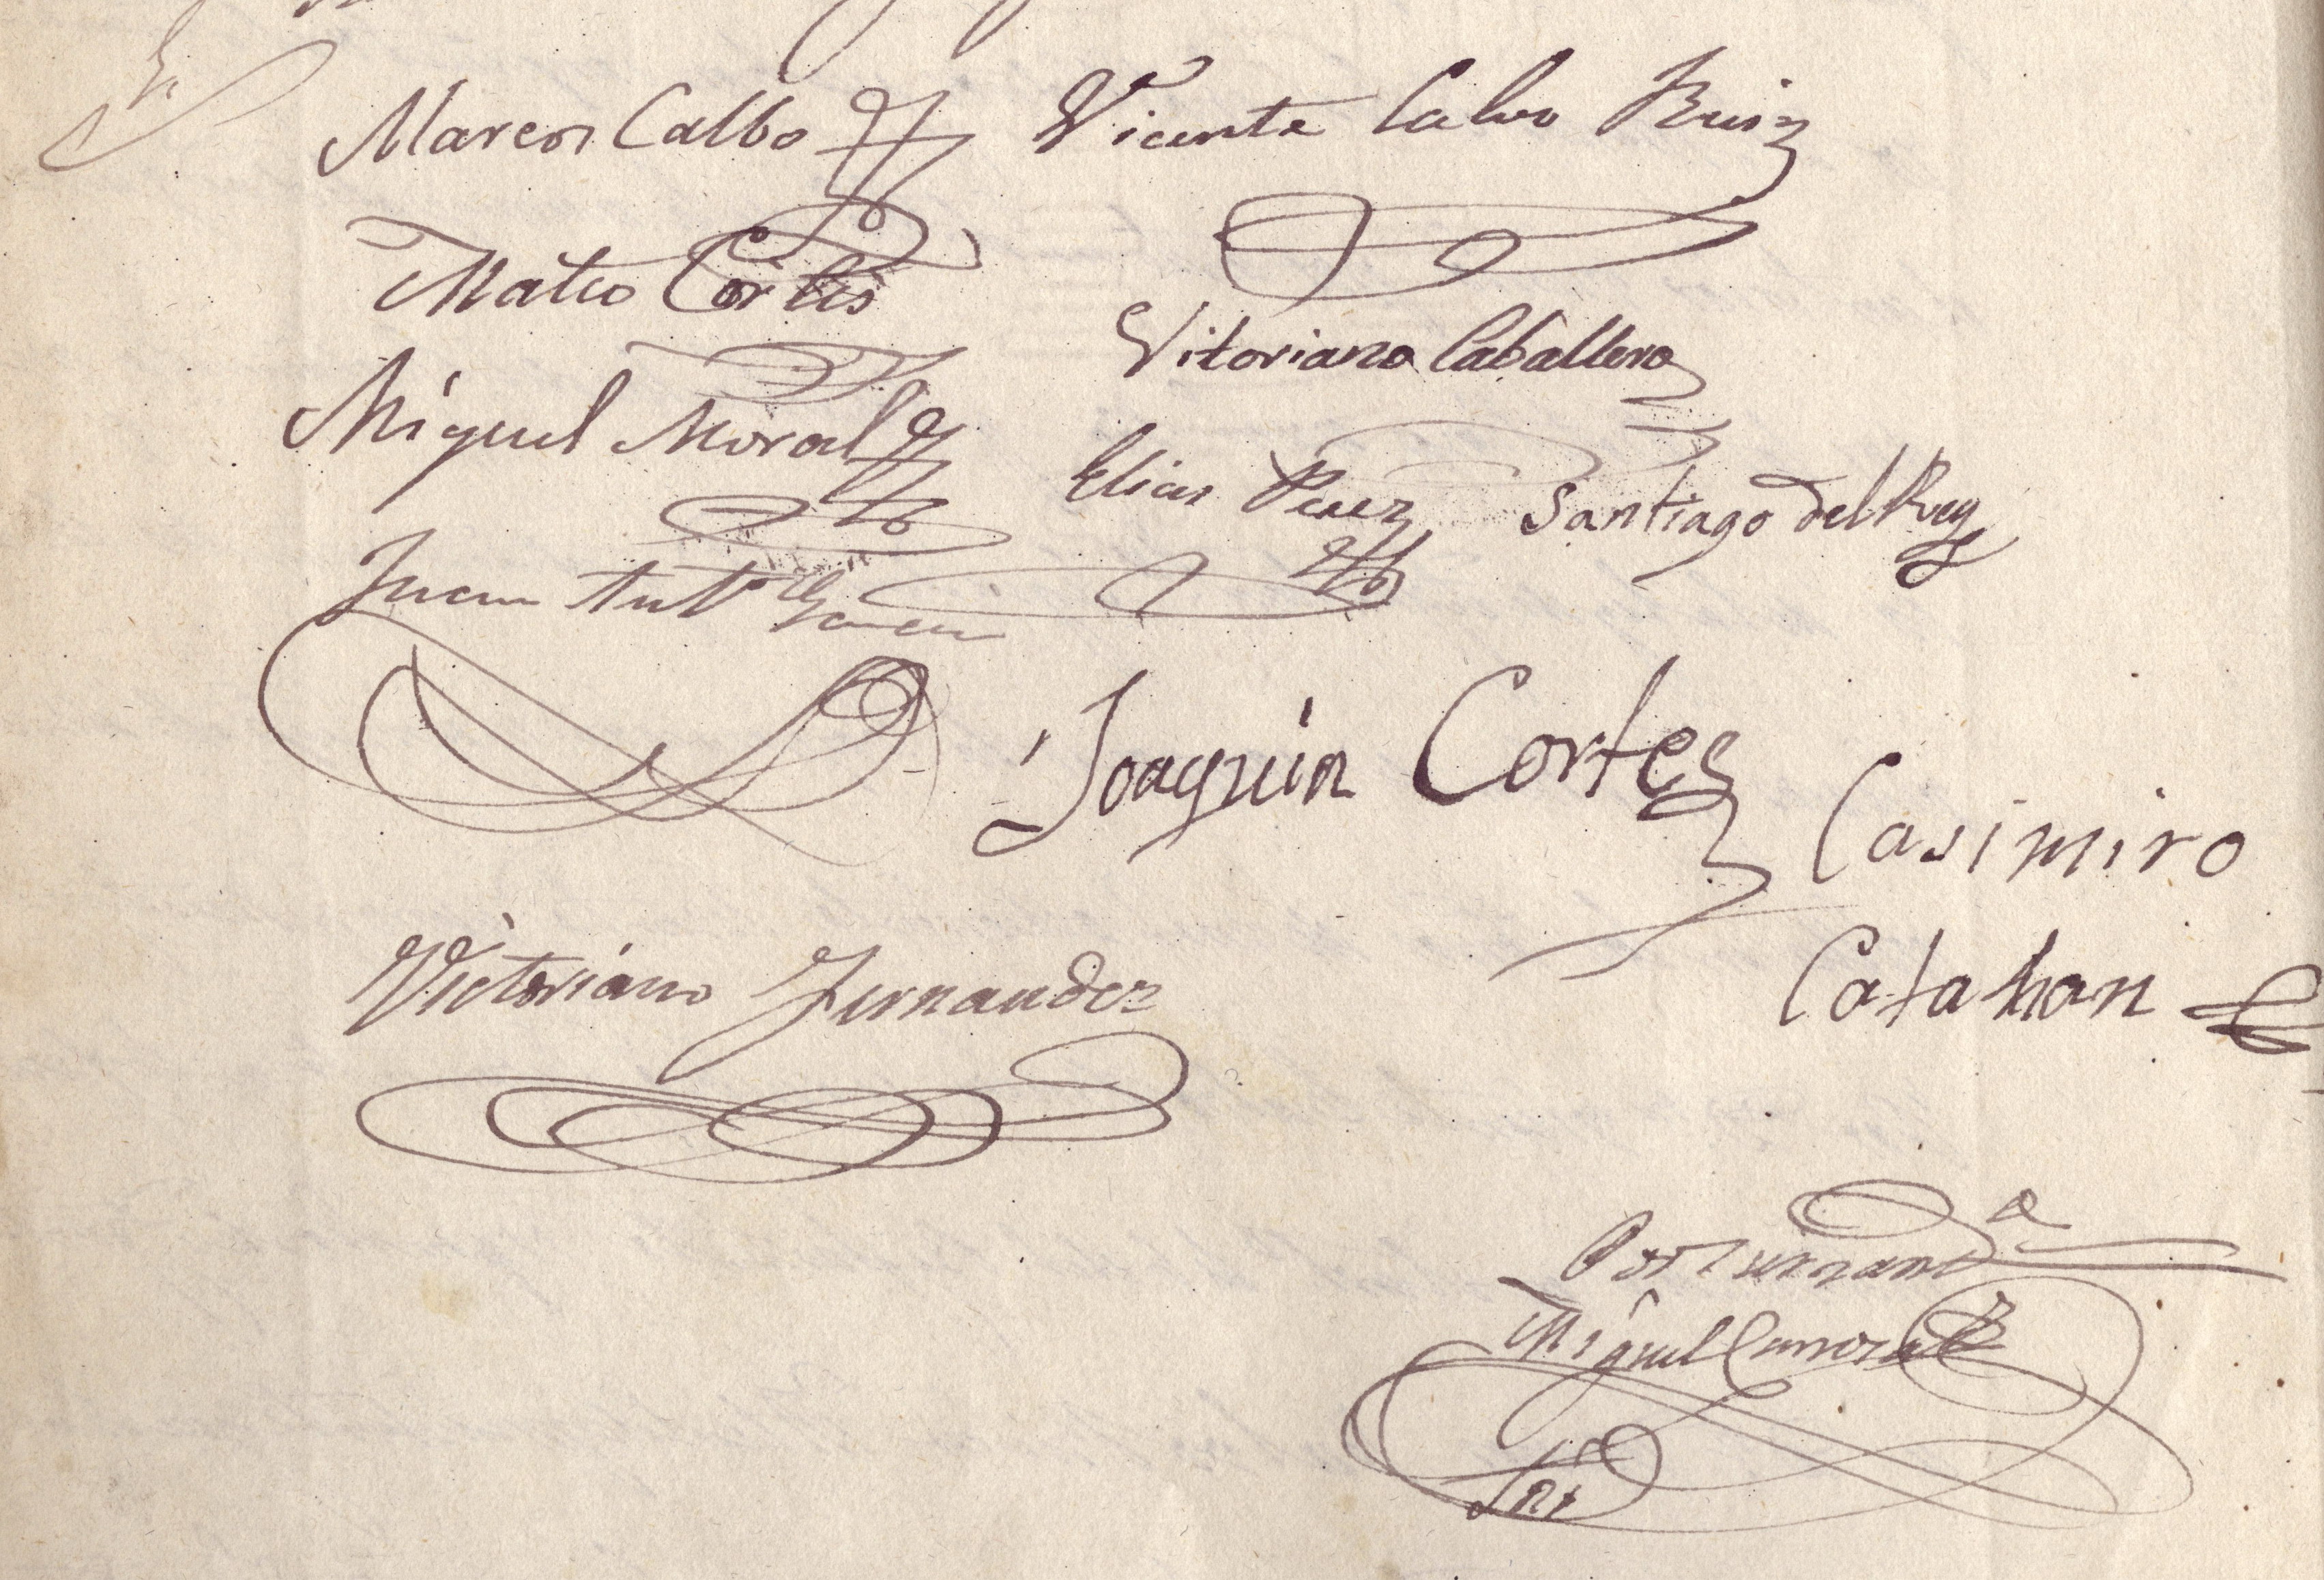 Marcos Calbo Vicente Calvo Ruiz
Mateo Cortes
Vitoriano Caballero
Miguel Moral
Elias Perez Santiago del Rey
Juan Antº
Joaquin Cortes
Casimiro
Victoriano Fernandez
Catahan
Miguel
Srio